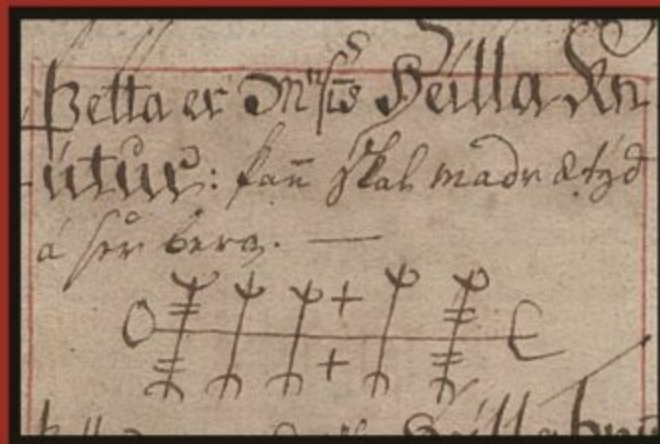 Þetta er Heilla Kn
útur: þañ skal madr ætyd
á sier bera.